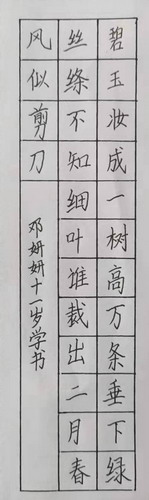 碧玉妆成一树高万条垂下绿
丝绦不知细叶谁裁出二月春
风似剪刀
邓妍妍十一岁学书